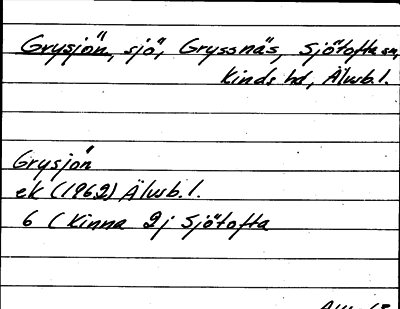 Grysjön, sjö, Gryssnäs, Sjötofta sn,
Kinds hd, Älvsb. l.
Grysjön
ek (1962) Älvsb. l.
6 ( Kinna 2 j Sjötofta